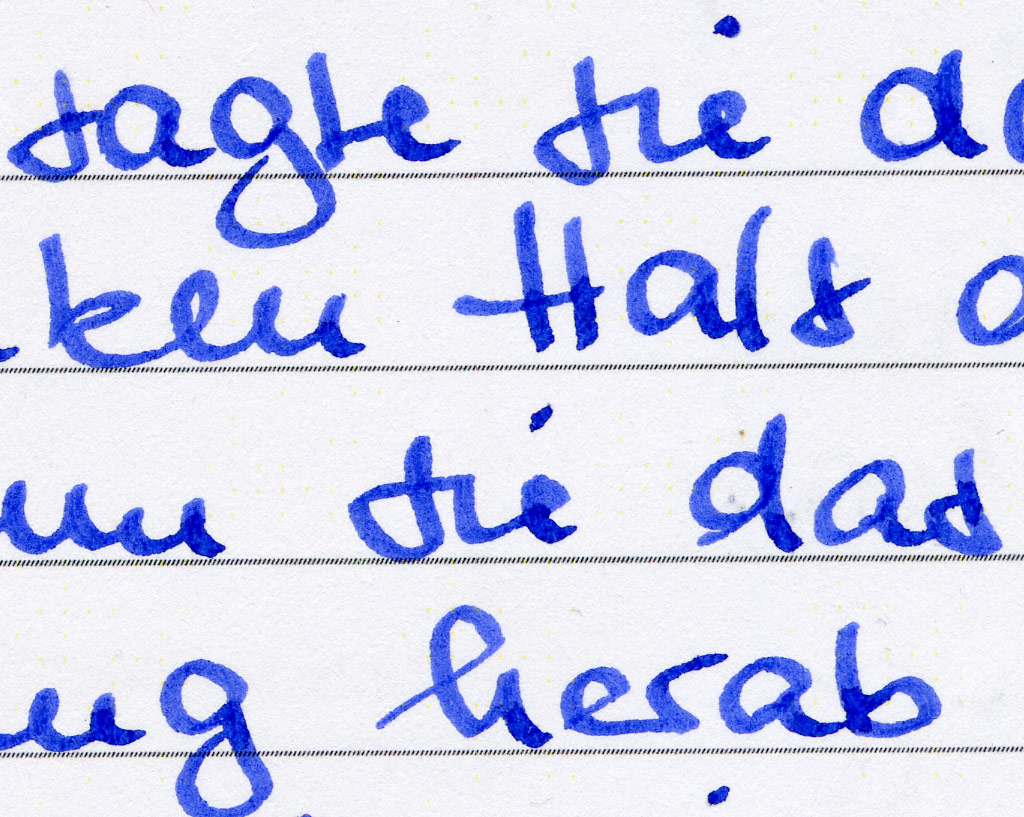 sagte sie da
ken Hals a
nn sie das
ng herab